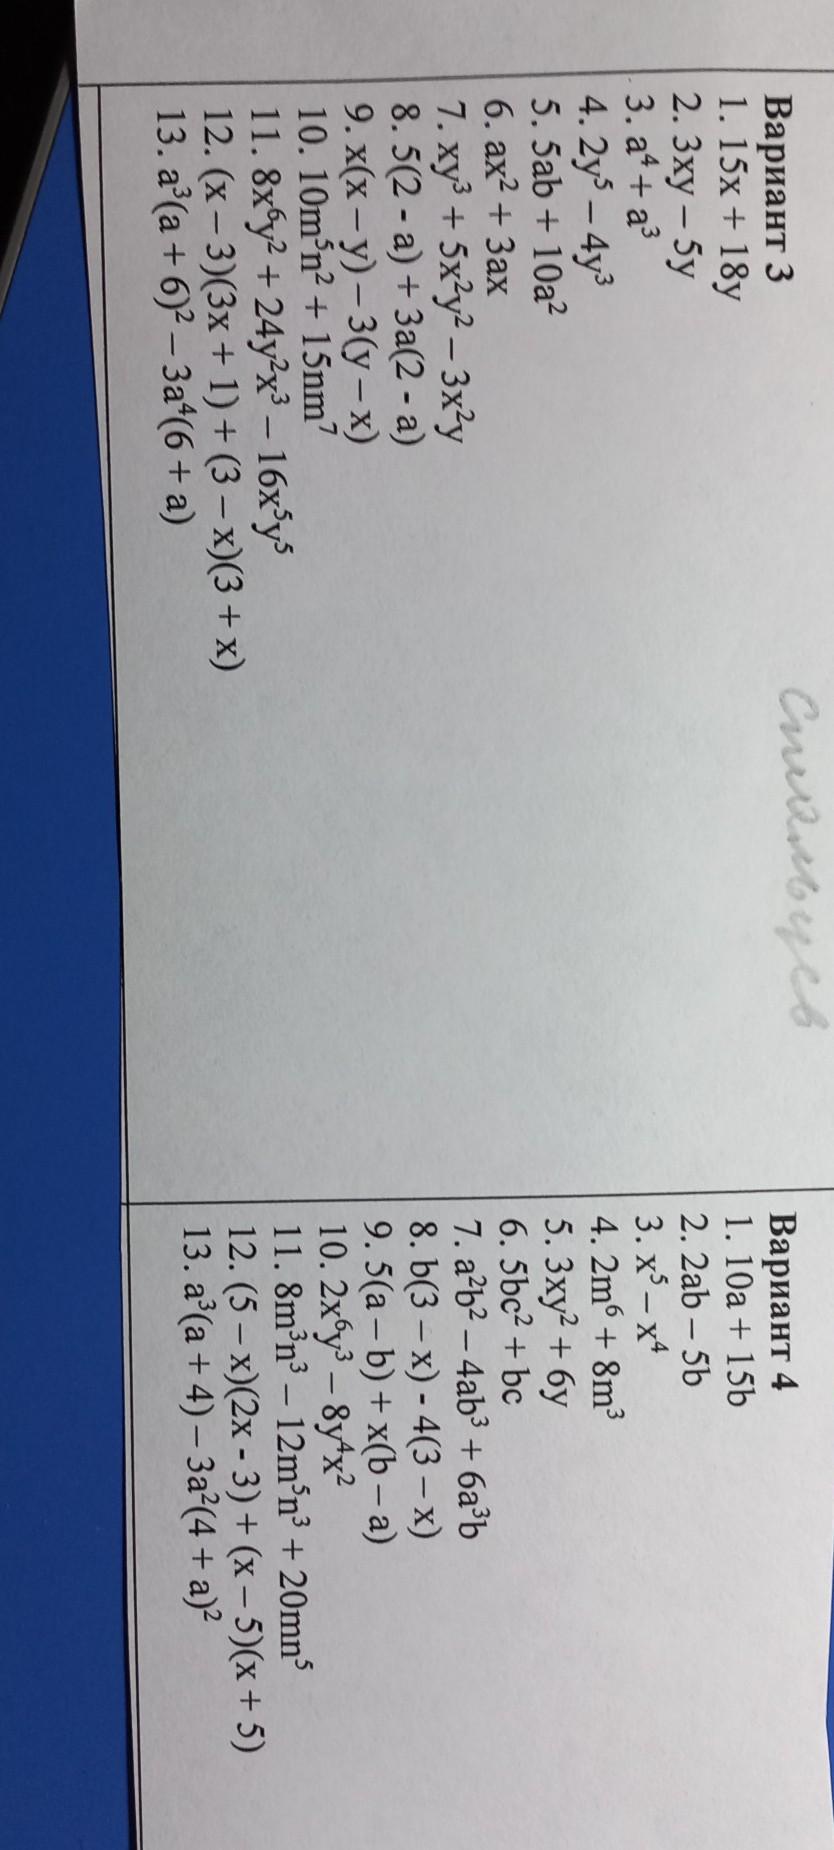 Вариант 3
1. 15x + 18y
2. 3xy – 5y
3. a⁴ + a³
4. 2y⁵ – 4y³
5. 5ab + 10a²
6. ax² + 3ax
7. xy³ + 5x²y² – 3x²y
8. 5(2 - a) + 3a(2 - a)
9. x(x – y) – 3(y – x)
10. 10m⁵n² + 15nm⁷
11. 8x⁶y² + 24y²x³ – 16x⁵y⁵
12. (x – 3)(3x + 1) + (3 – x)(3 + x)
13. a³(a + 6)² – 3a⁴(6 + a)
Вариант 4
1. 10a + 15b
2. 2ab – 5b
3. x⁵ – x⁴
4. 2m⁶ + 8m³
5. 3xy² + 6y
6. 5bc² + bc
7. a²b² – 4ab³ + 6a³b
8. b(3 – x) - 4(3 – x)
9. 5(a – b) + x(b – a)
10. 2x⁶y³ – 8y⁴x²
11. 8m³n³ – 12m⁵n³ + 20mn⁵
12. (5 – x)(2x - 3) + (x – 5)(x + 5)
13. a³(a + 4) – 3a²(4 + a)²